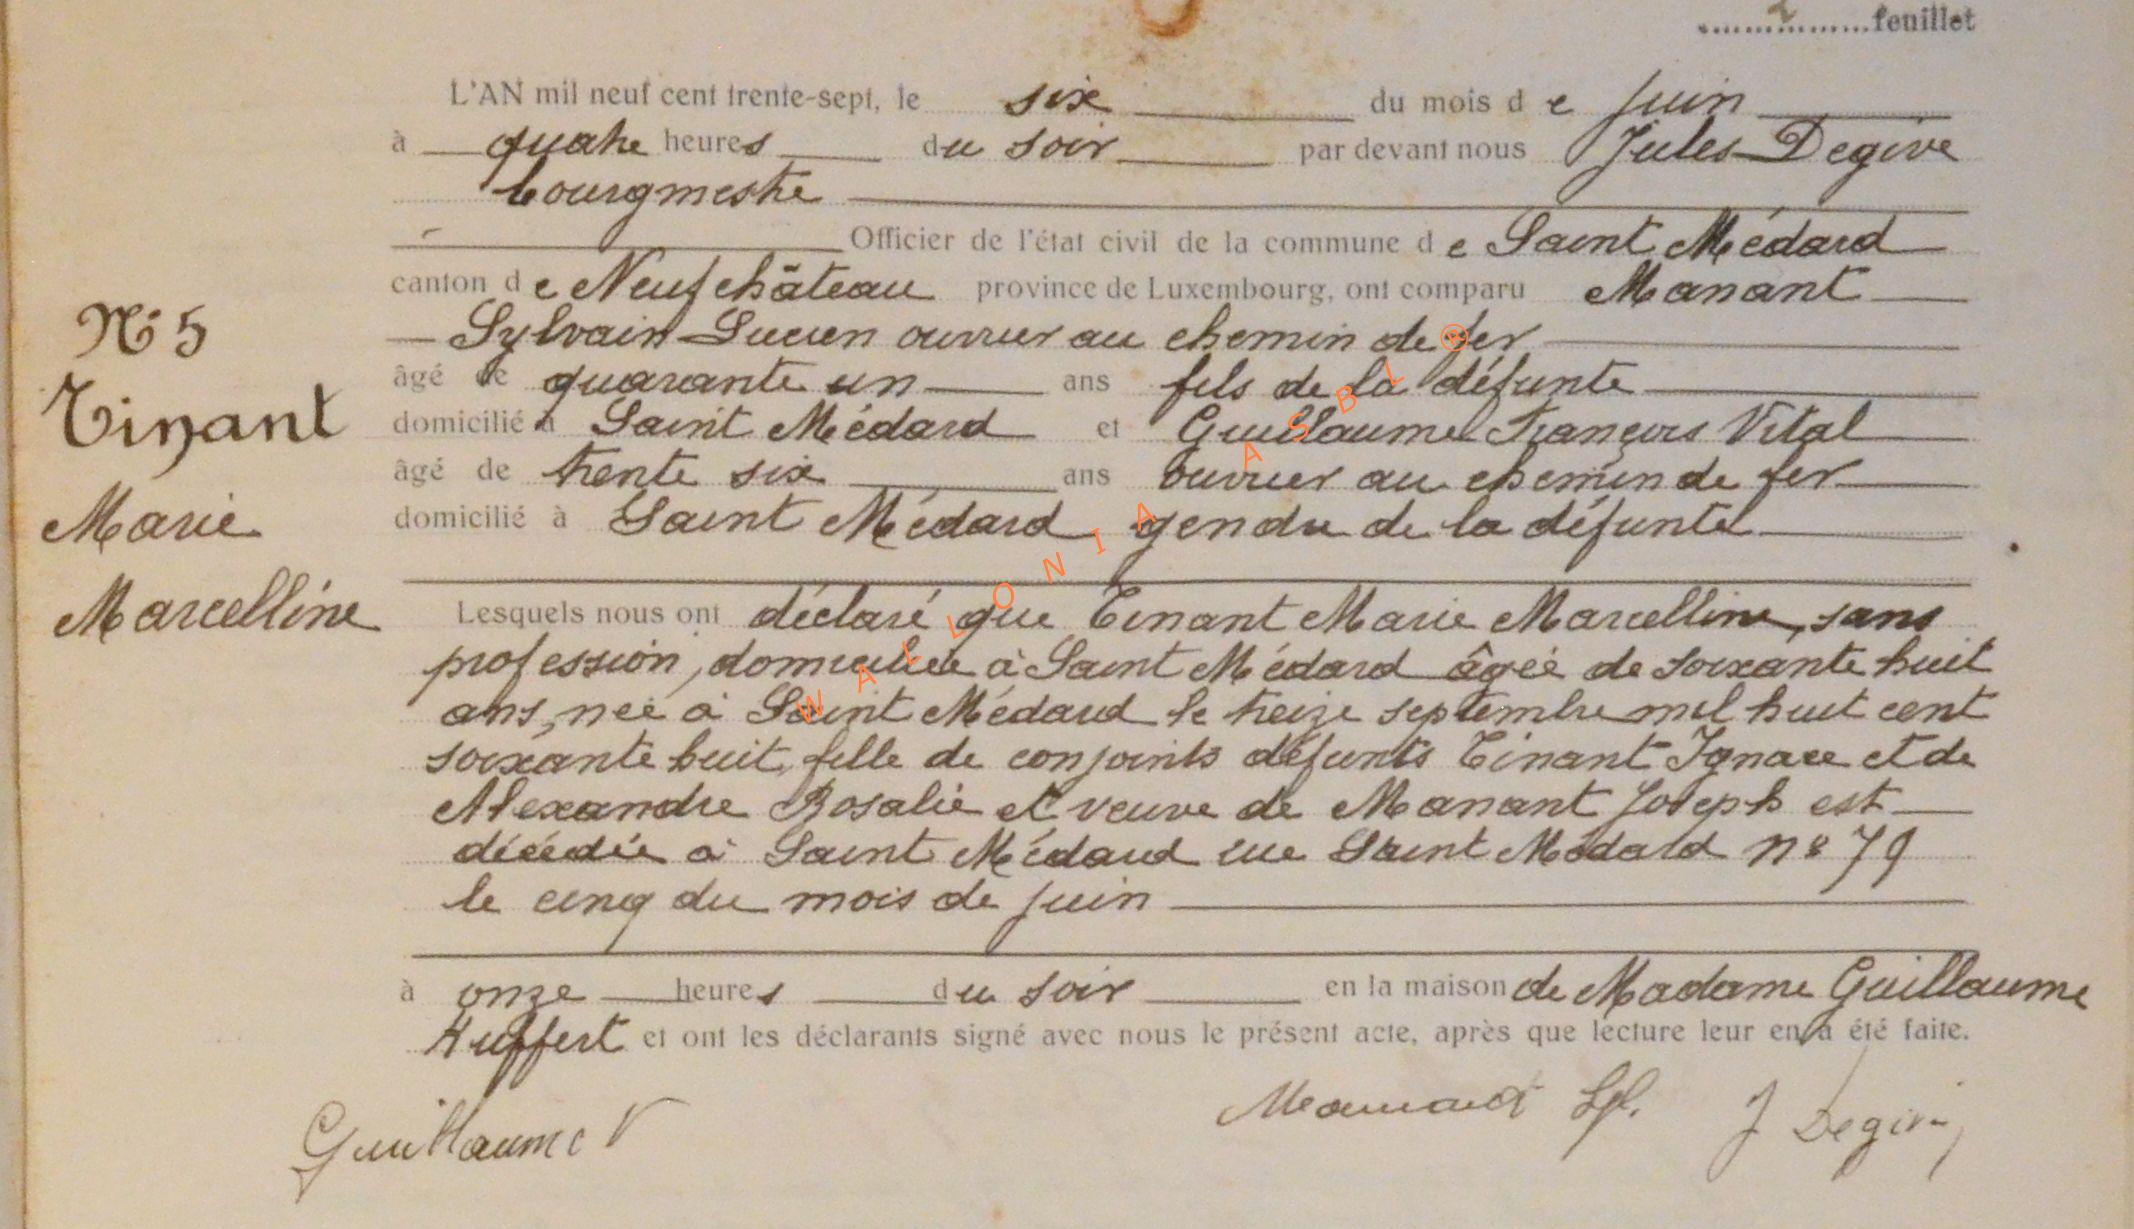 2 feuillet
L'AN mil neuf cent trente-sept, le six du mois de juin
à quatre heures du soir par devant nous Jules Degive
bourgmestre
Officier de l'état civil de la commune de Saint Médard
canton de Neufchâteau province de Luxembourg, ont comparu Manant
Sylvain Lucien ouvrier au chemin de fer
âgé de quarante un ans fils de la défunte
domicilié à Saint Médard et Guillaume François Vital
âgé de trente six ans ouvrier au chemin de fer
domicilié à Saint Médard gendre de la défunte
N° 5
Tinant
Marie
Marcelline
Lesquels nous ont déclaré que Tinant Marie Marcelline, sans
profession, domiciliée à Saint Médard âgée de soixante huit
ans, née à Saint Médard le treize septembre mil huit cent
soixante huit, fille de conjoints défunts Tinant Ignace et de
Alexandre Rosalie et veuve de Manant Joseph est
décédée à Saint Médard rue Saint Médard n° 79
le cinq du mois de juin
à onze heures du soir en la maison de Madame Guillaume
Huffert et ont les déclarants signé avec nous le présent acte, après que lecture leur en a été faite.
Guillaume V
Manant Syl.
J Degive
WALLONIA ASBL ®